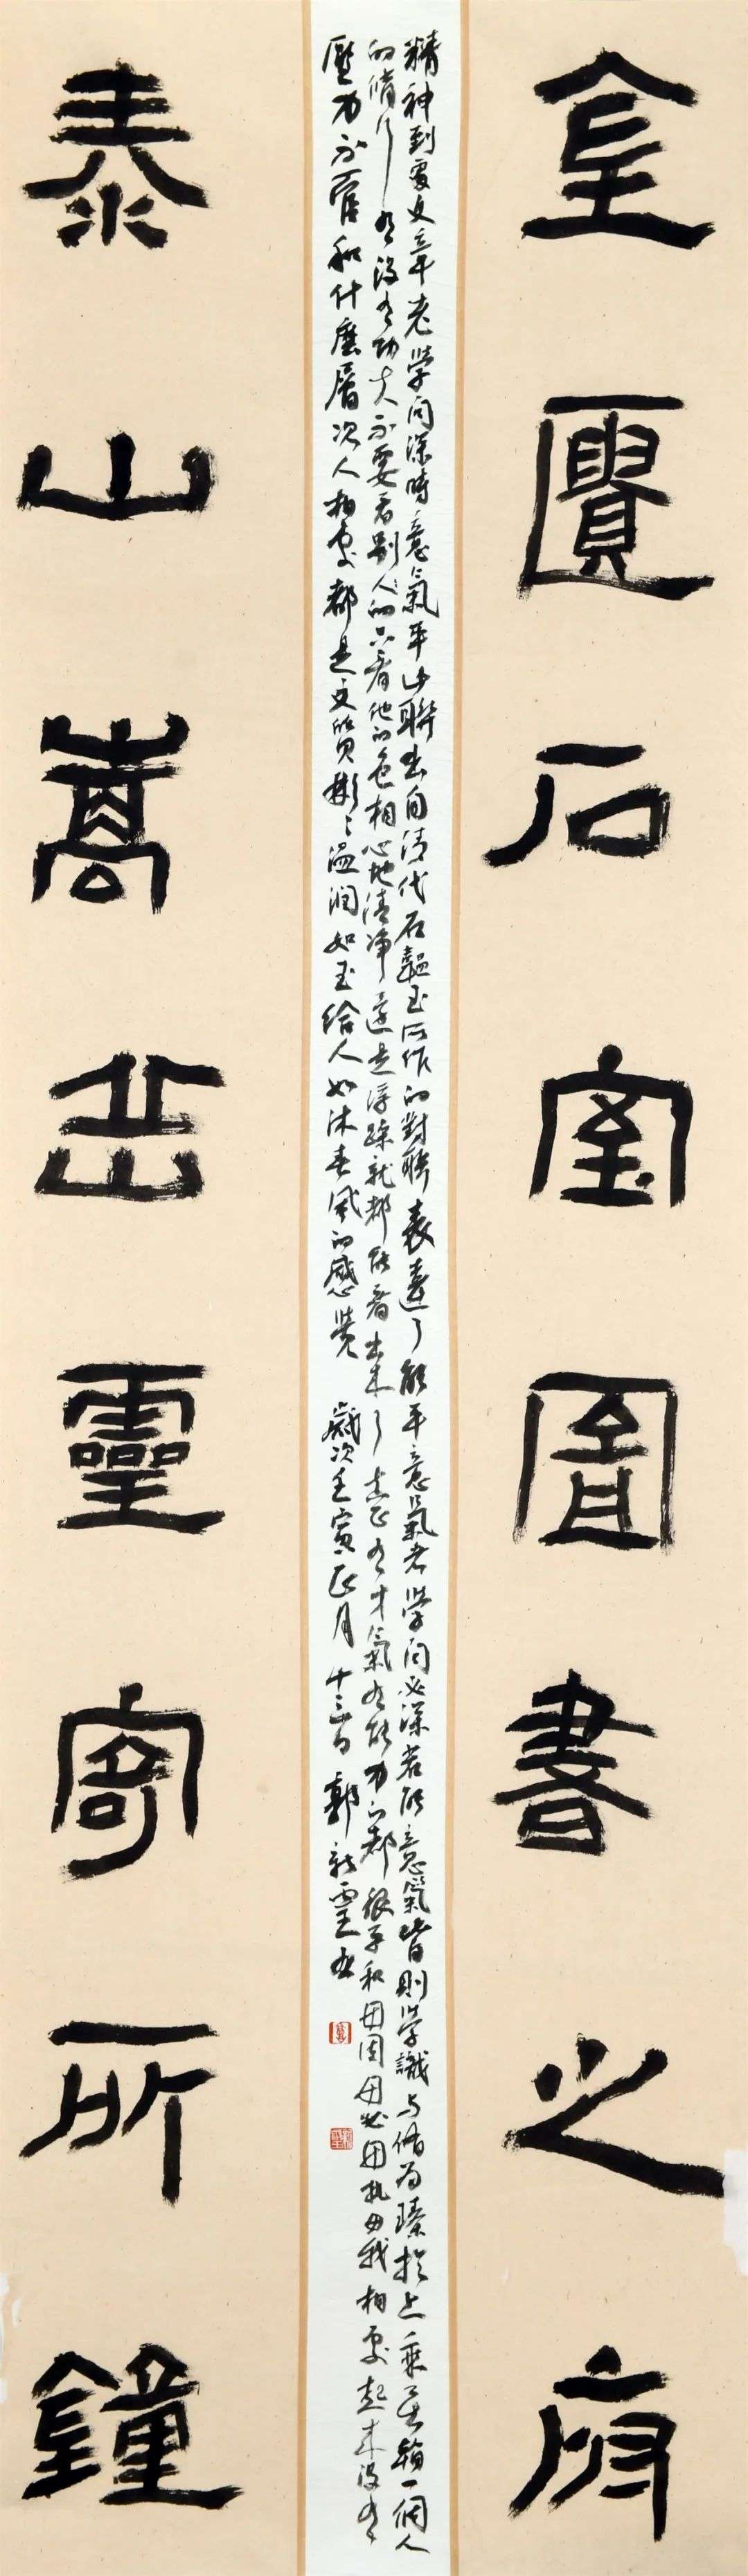 金匱石室圖書之府
精神到處文章老學問深時意氣平此聯出自清代石韞玉所作的對聯表達了能平意氣者學問必深若能意氣皆則學識与修為臻於上乘至於一個人
的修行有沒有功夫不要看別人的只看他的色相心地清净還是浮躁就都能看出來了真正有才氣有能力的都很平和毋固毋必毋執毋我相處起來沒有
壓力不管和什麼層次人相處都是文質彬彬溫潤如玉給人如沐春風的感覺 歲次壬寅正月十三日郭新聖書
泰山嵩岳靈寄所鐘